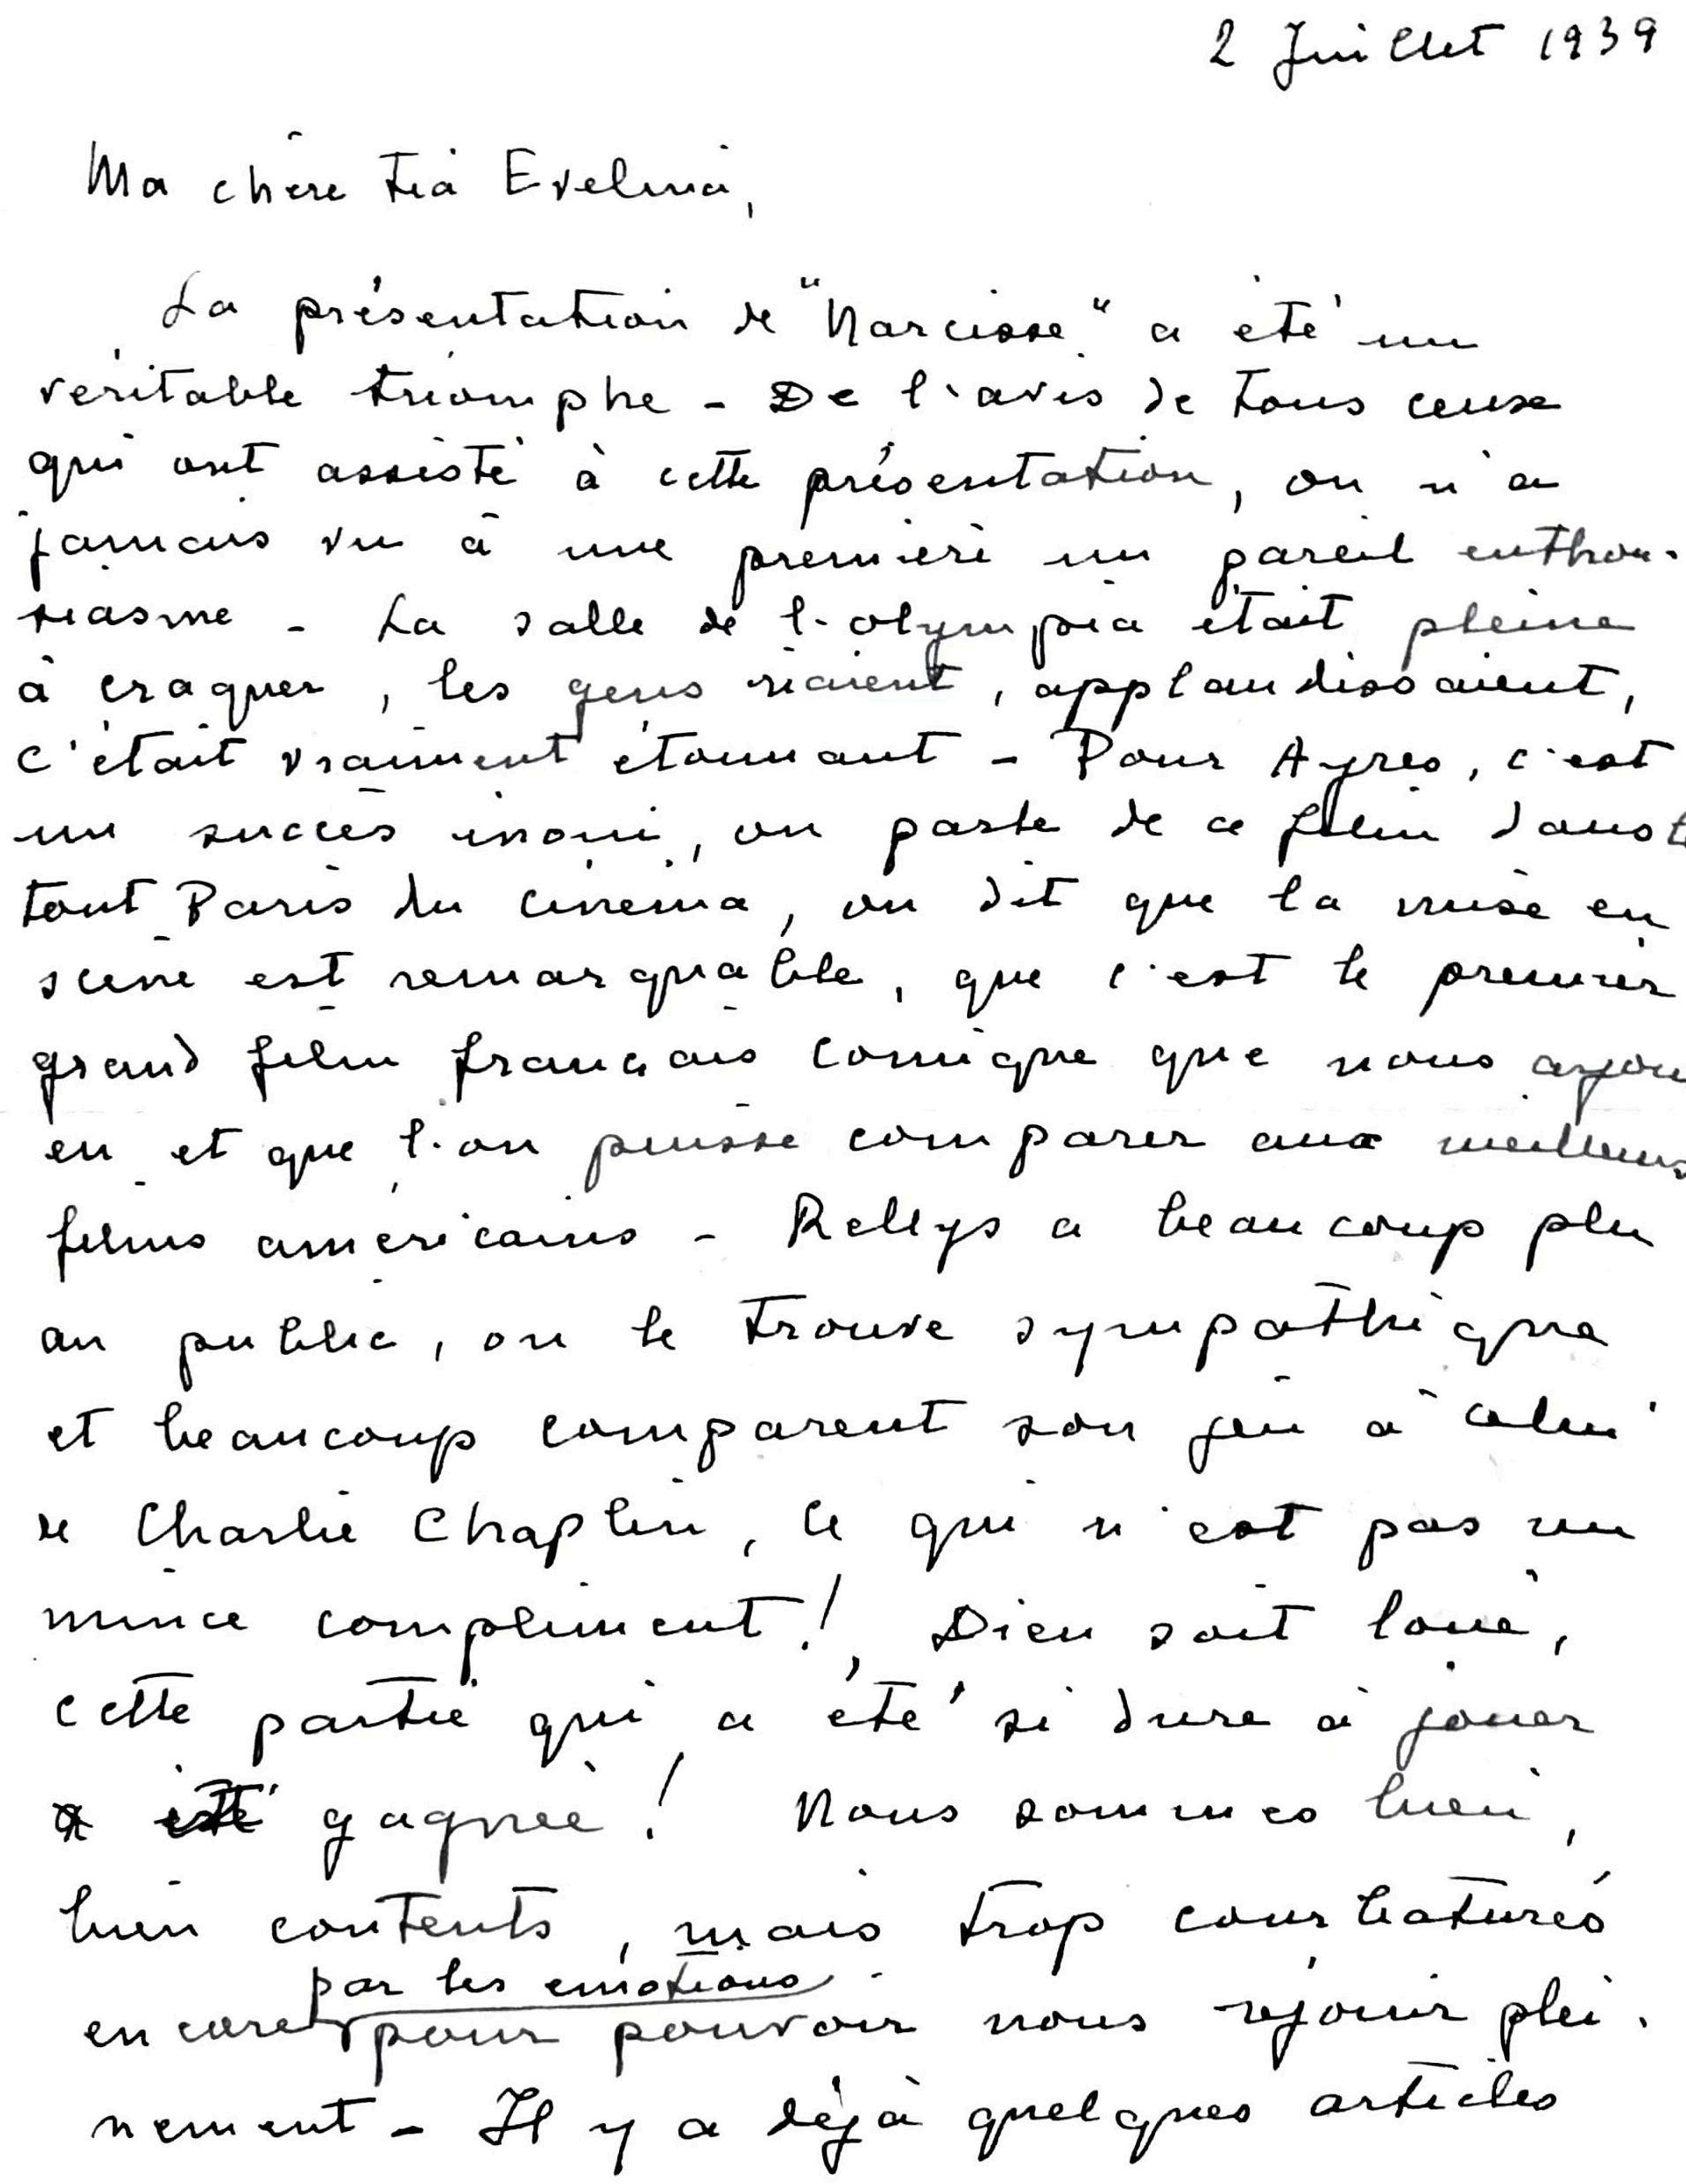 2 Juillet 1939
Ma chère Tia Evelina,
La présentation de "Narcisse" a été un
véritable triomphe - De l'avis de tous ceux
qui ont assisté à cette présentation, on n'a
jamais vu à une première un pareil enthou-
siasme - La salle de l'Olympia était pleine
à craquer, les gens riaient, applaudissaient,
c'était vraiment étonnant - Pour Ayres, c'est
un succès inoui, on parle de ce film dans
tout Paris du cinéma, on dit que la mise en
scène est remarquable, que c'est le premier
grand film français comique que nous ayon
eu et que l'on puisse comparer aux meilleurs
films américains - Rellys a beaucoup plu
au public, on le trouve sympathique
et beaucoup comparent son jeu à celui
de Charlie Chaplin, ce qui n'est pas un
mince compliment! Dieu soit loué,
cette partie qui a été si dure à jouer
a été gagnée! Nous sommes bien,
bien contents, mais trop courbaturés
par les émotions
encore pour pouvoir nous réjouir plei-
nement - Il y a déjà quelques articles